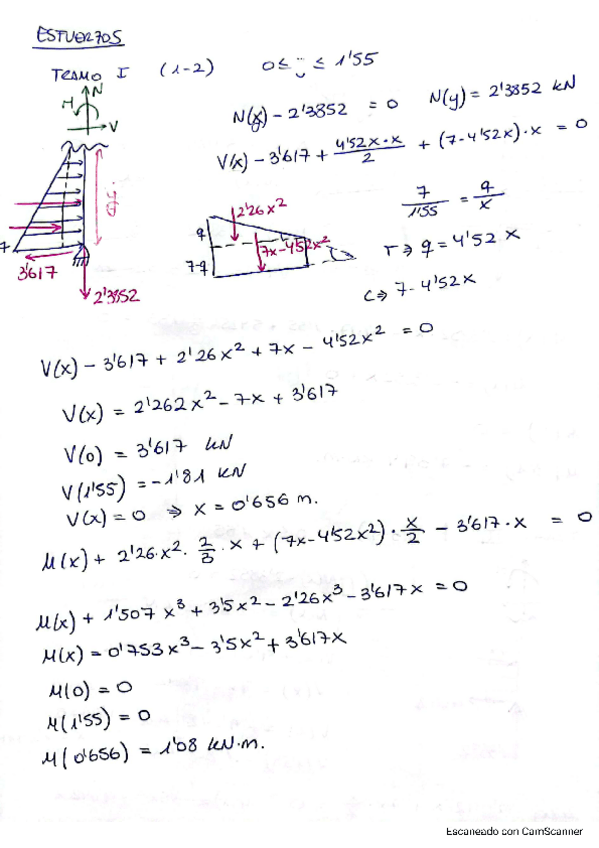 ESFUERZOS
TRAMO I (1-2) 0 ≤ ≤ 1'55
N
M
V
N(y) - 2'3852 = 0 N(y) = 2'3852 kN
V(x) - 3'617 + 4'52x·x/2 + (7-4'52x)·x = 0
7/1'55 = q/x
T ⇒ q = 4'52 x
C ⇒ 7 - 4'52x
7
3'617
2'3852
2'26x²
q
7-q
7x-4'52x²
V(x) - 3'617 + 2'26x² + 7x - 4'52x² = 0
V(x) = 2'262x² - 7x + 3'617
V(0) = 3'617 kN
V(1'55) = -1'81 kN
V(x) = 0 ⇒ x = 0'656 m.
M(x) + 2'26·x²· 2/3 ·x + (7x-4'52x²)· x/2 - 3'617·x = 0
M(x) + 1'507 x³ + 3'5x² - 2'26x³ - 3'617x = 0
M(x) = 0'753x³ - 3'5x² + 3'617x
M(0) = 0
M(1'55) = 0
M(0'656) = 1'08 kN·m.
Escaneado con CamScanner